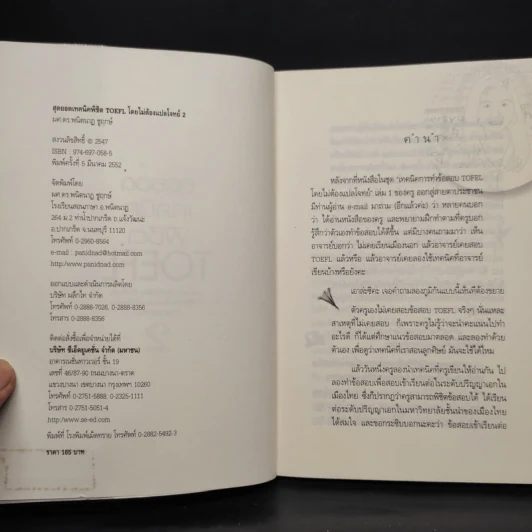 สุดยอดเทคนิคพิชิต TOEFL โดยไม่ต้องแปลโจทย์ 2
ผศ.ดร.พนิตนาฏ ชูฤกษ์
สงวนลิขสิทธิ์ © 2547
ISBN : 974-697-058-5
พิมพ์ครั้งที่ 5 มีนาคม 2552
จัดพิมพ์โดย
ผศ.ดร.พนิตนาฏ ชูฤกษ์
โรงเรียนสอนภาษา อ.พนิตนาฏ
264 ม.2 ท่าน้ำปากเกร็ด ถ.แจ้งวัฒนะ
อ.ปากเกร็ด จ.นนทบุรี 11120
โทรศัพท์ 0-2960-8564
e-mail : panidnad@hotmail.com
http://www.panidnad.com
ออกแบบและดำเนินการผลิตโดย
บริษัท ผลึกไท จำกัด
โทรศัพท์ 0-2888-7026, 0-2888-8356
โทรสาร 0-2888-8356
ติดต่อสั่งซื้อเพื่อจำหน่ายได้ที่
บริษัท ซีเอ็ดยูเคชั่น จำกัด (มหาชน)
อาคารเนชั่นทาวเวอร์ ชั้น 19
เลขที่ 46/87-90 ถนนบางนา-ตราด
แขวงบางนา เขตบางนา กรุงเทพฯ 10260
โทรศัพท์ 0-2751-5888, 0-2325-1111
โทรสาร 0-2751-5051-4
http://www.se-ed.com
พิมพ์ที่ โรงพิมพ์เม็ดทราย โทรศัพท์ 0-2882-5492-3
ราคา 165 บาท
คำนำ
หลังจากที่หนังสือในชุด "เทคนิคการทำข้อสอบ TOEFL
โดยไม่ต้องแปลโจทย์" เล่ม 1 ของครู ออกสู่สายตาประชาชน
มีท่านผู้อ่าน e-mail มาถาม (อีกแล้วค่ะ) ว่า หลายคนบอก
ว่า ได้อ่านหนังสือของครู และพยายามฝึกทำตามที่ครูบอก
รู้สึกว่าตัวเองทำข้อสอบได้ดีขึ้น แต่มีบางคนถามมาว่า เห็น
อาจารย์บอกว่า ไม่เคยเรียนเมืองนอก แล้วอาจารย์เคยสอบ
TOEFL แล้วหรือ แล้วอาจารย์เคยลองใช้เทคนิคที่อาจารย์
เขียนบ้างหรือยังคะ
เอาล่ะซิคะ เจอคำถามลองภูมิกันแบบนี้เห็นทีต้องขยาย
ตัวครูเองไม่เคยสอบข้อสอบ TOEFL จริงๆ นั่นแหละ
สาเหตุที่ไม่เคยสอบ ก็เพราะครูไม่รู้ว่าจะนำคะแนนไปทำ
อะไรดี ก็ได้แต่ศึกษาแนวข้อสอบมาตลอด และลองทำด้วย
ตัวเอง เพื่อดูว่าเทคนิคที่เราสอนลูกศิษย์ มันจะใช้ได้ไหม
แล้ววันหนึ่งครูลองนำเทคนิคที่ครูเขียนให้อ่านกัน ไป
ลองทำข้อสอบเพื่อสอบเข้าเรียนต่อในระดับปริญญาเอกใน
เมืองไทย ซึ่งก็ปรากฏว่าครูสามารถพิชิตข้อสอบได้ ได้เรียน
ต่อระดับปริญญาเอกในมหาวิทยาลัยชั้นนำของเมืองไทย
ได้สมใจ และขอกระซิบบอกนะคะว่า ข้อสอบเข้าเรียนต่อ